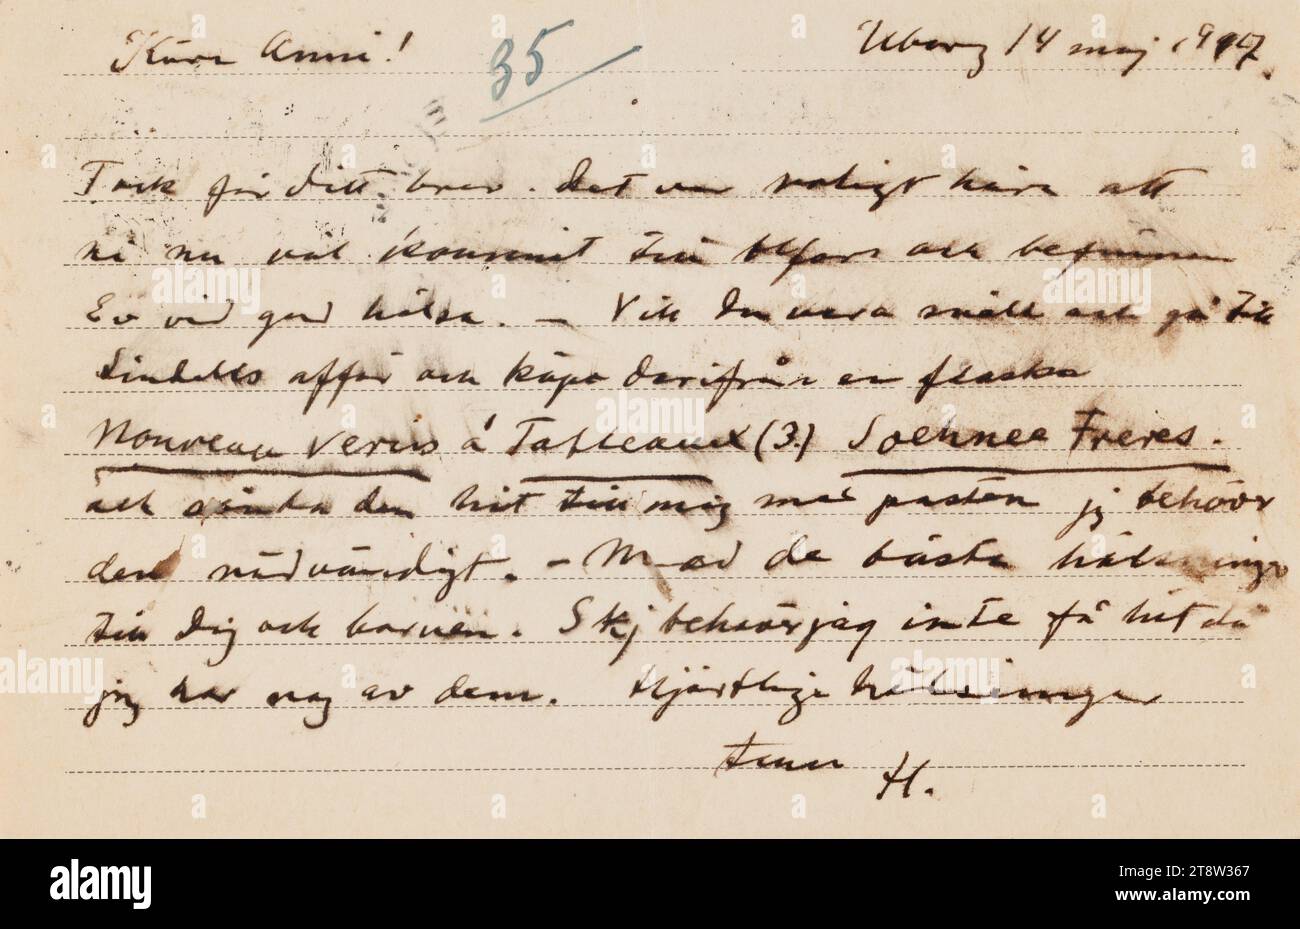 Kära Anni! 35 Uborg 14 maj 1917.
Tack för ditt brev. Det var roligt höra att
ni nu väl kommit till Hfors och befinner
Er vid god hälsa. – Vill Du vara snäll och gå till
Lindells affär och köpa därifrån en flaska
Nouveau Vernis à Tableaux (3.) Soehnee Freres.
och sända den hit till mig med posten jg behöver
den nödvändigt. – Med de bästa hälsningar
till Dig och barnen. Skj behöver jag inte få hit då
jag har nog av dem. Hjärtliga hälsningar
H.
alamy
Image ID: 2T8W367
www.alamy.com